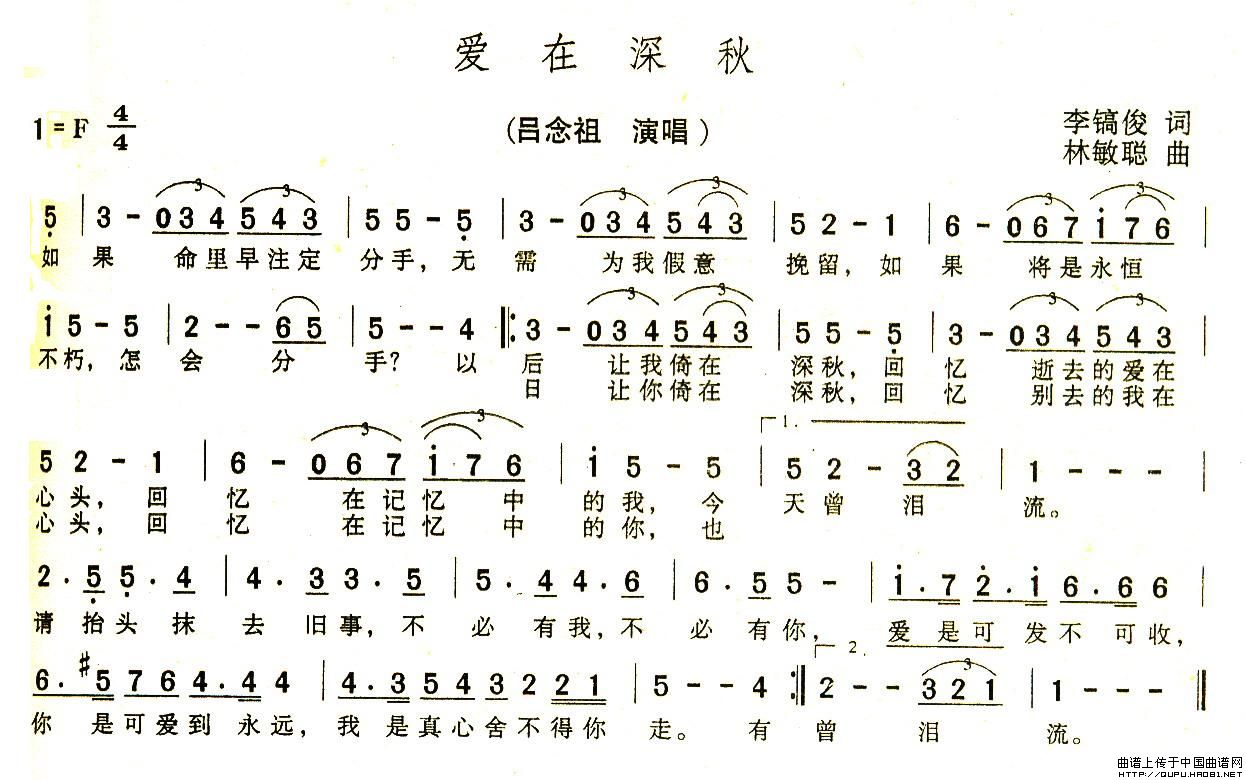 爱在深秋
1=F 4/4
(吕念祖 演唱)
李镐俊 词
林敏聪 曲
5 | 3 - 0 3 4 5 4 3 | 5 5 - 5 | 3 - 0 3 4 5 4 3 | 5 2 - 1 | 6 - 0 6 7 i 7 6 |
如 果 命里早注定 分手，无 需 为我假意 挽留，如 果 将是永恒
i 5 - 5 | 2 - - 6 5 | 5 - - 4 |: 3 - 0 3 4 5 4 3 | 5 5 - 5 | 3 - 0 3 4 5 4 3 |
不朽，怎 会 分 手？以 后 让我倚在 深秋，回 忆 逝去的爱在
日 让你倚在 深秋，回 忆 别去的我在
5 2 - 1 | 6 - 0 6 7 i 7 6 | i 5 - 5 | 1. 5 2 - 3 2 | 1 - - - |
心头，回 忆 在记忆 中 的我，今 天曾 泪 流。
心头，回 忆 在记忆 中 的你，也
2 . 5 5 . 4 | 4 . 3 3 . 5 | 5 . 4 4 . 6 | 6 . 5 5 - | i . 7 2 . i 6 . 6 6 |
请 抬头 抹 去 旧事，不 必 有我，不 必 有你， 爱 是可 发不 可收，
6 . #5 7 6 4 . 4 4 | 4 . 3 5 4 3 2 2 1 | 5 - - 4 :| 2. 2 - - 3 2 1 | 1 - - - |
你 是可爱到 永远，我 是真心舍不得你 走。 有 曾 泪 流。
曲谱上传于中国曲谱网
HTTP://QUPU.HAO81.NET